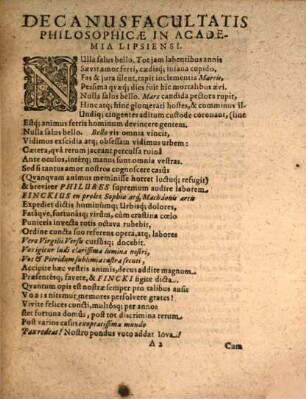 DECANUS FACULTATIS
PHILOSOPHICÆ IN ACADE-
MIA LIPSIENSI.
NUlla salus bello. Tot jam labentibus annis
Sævit amor ferri, cædisq; insana cupido,
Fas & jura silent, rapit inclementia Martis,
Pessima quæq; dies fuit hic mortalibus ævi.
Nulla salus bello. Mars candida pectora rupit,
Hinc atq; hinc glomerati hostes, & comminus il-
Undiq; cingentes aditum custode coronant, (line
Estq; animus ferris hominum devincere gentem.
Nulla salus bello. Bello vis omnia vincit,
Vidimus excidia atq; obsessam vidimus urbem:
Cætera, quâ rerum jaceant perculsa ruinâ
Ante oculos, intérq; manus sunt omnia vestras.
Sed si tantus amor nostros cognoscere casus
(Quanquam animus meminisse horret luctuq; refugit)
& breviter PHILURES supremum audire laborem,
FINCKIUS en proles Sophiæ atq; Machdonis artis
Expediet dictis hominumq; Urbisq; dolores,
Fatáque, fortunásq; virûm, cùm crastina cœlo
Puniceis invecta rotis octava rubebit,
Ordine cuncta suo referens opera, atq; labores
Vera Virgilii Versu cursúsq; docebit.
Vos igitur ludi clarissima lumina nostri,
Vos & Pieridum sublimia castra secuti,
Accipite hæc vestris animis, decus addite magnum.
Præsentésq; favete, & FINCKI figite dicta.
Quantum opis est nostræ semper pro talibus ausis
Vobis nitimur memores persolvere grates!
Vivite felices cuncti, multósq; per annos
stet fortuna domûs, post tot discrimina rerum.
Post varios casus exoptatissima mundo
Pax redeat! Nostro pondus voto addat Iova.!
A 2
Cum